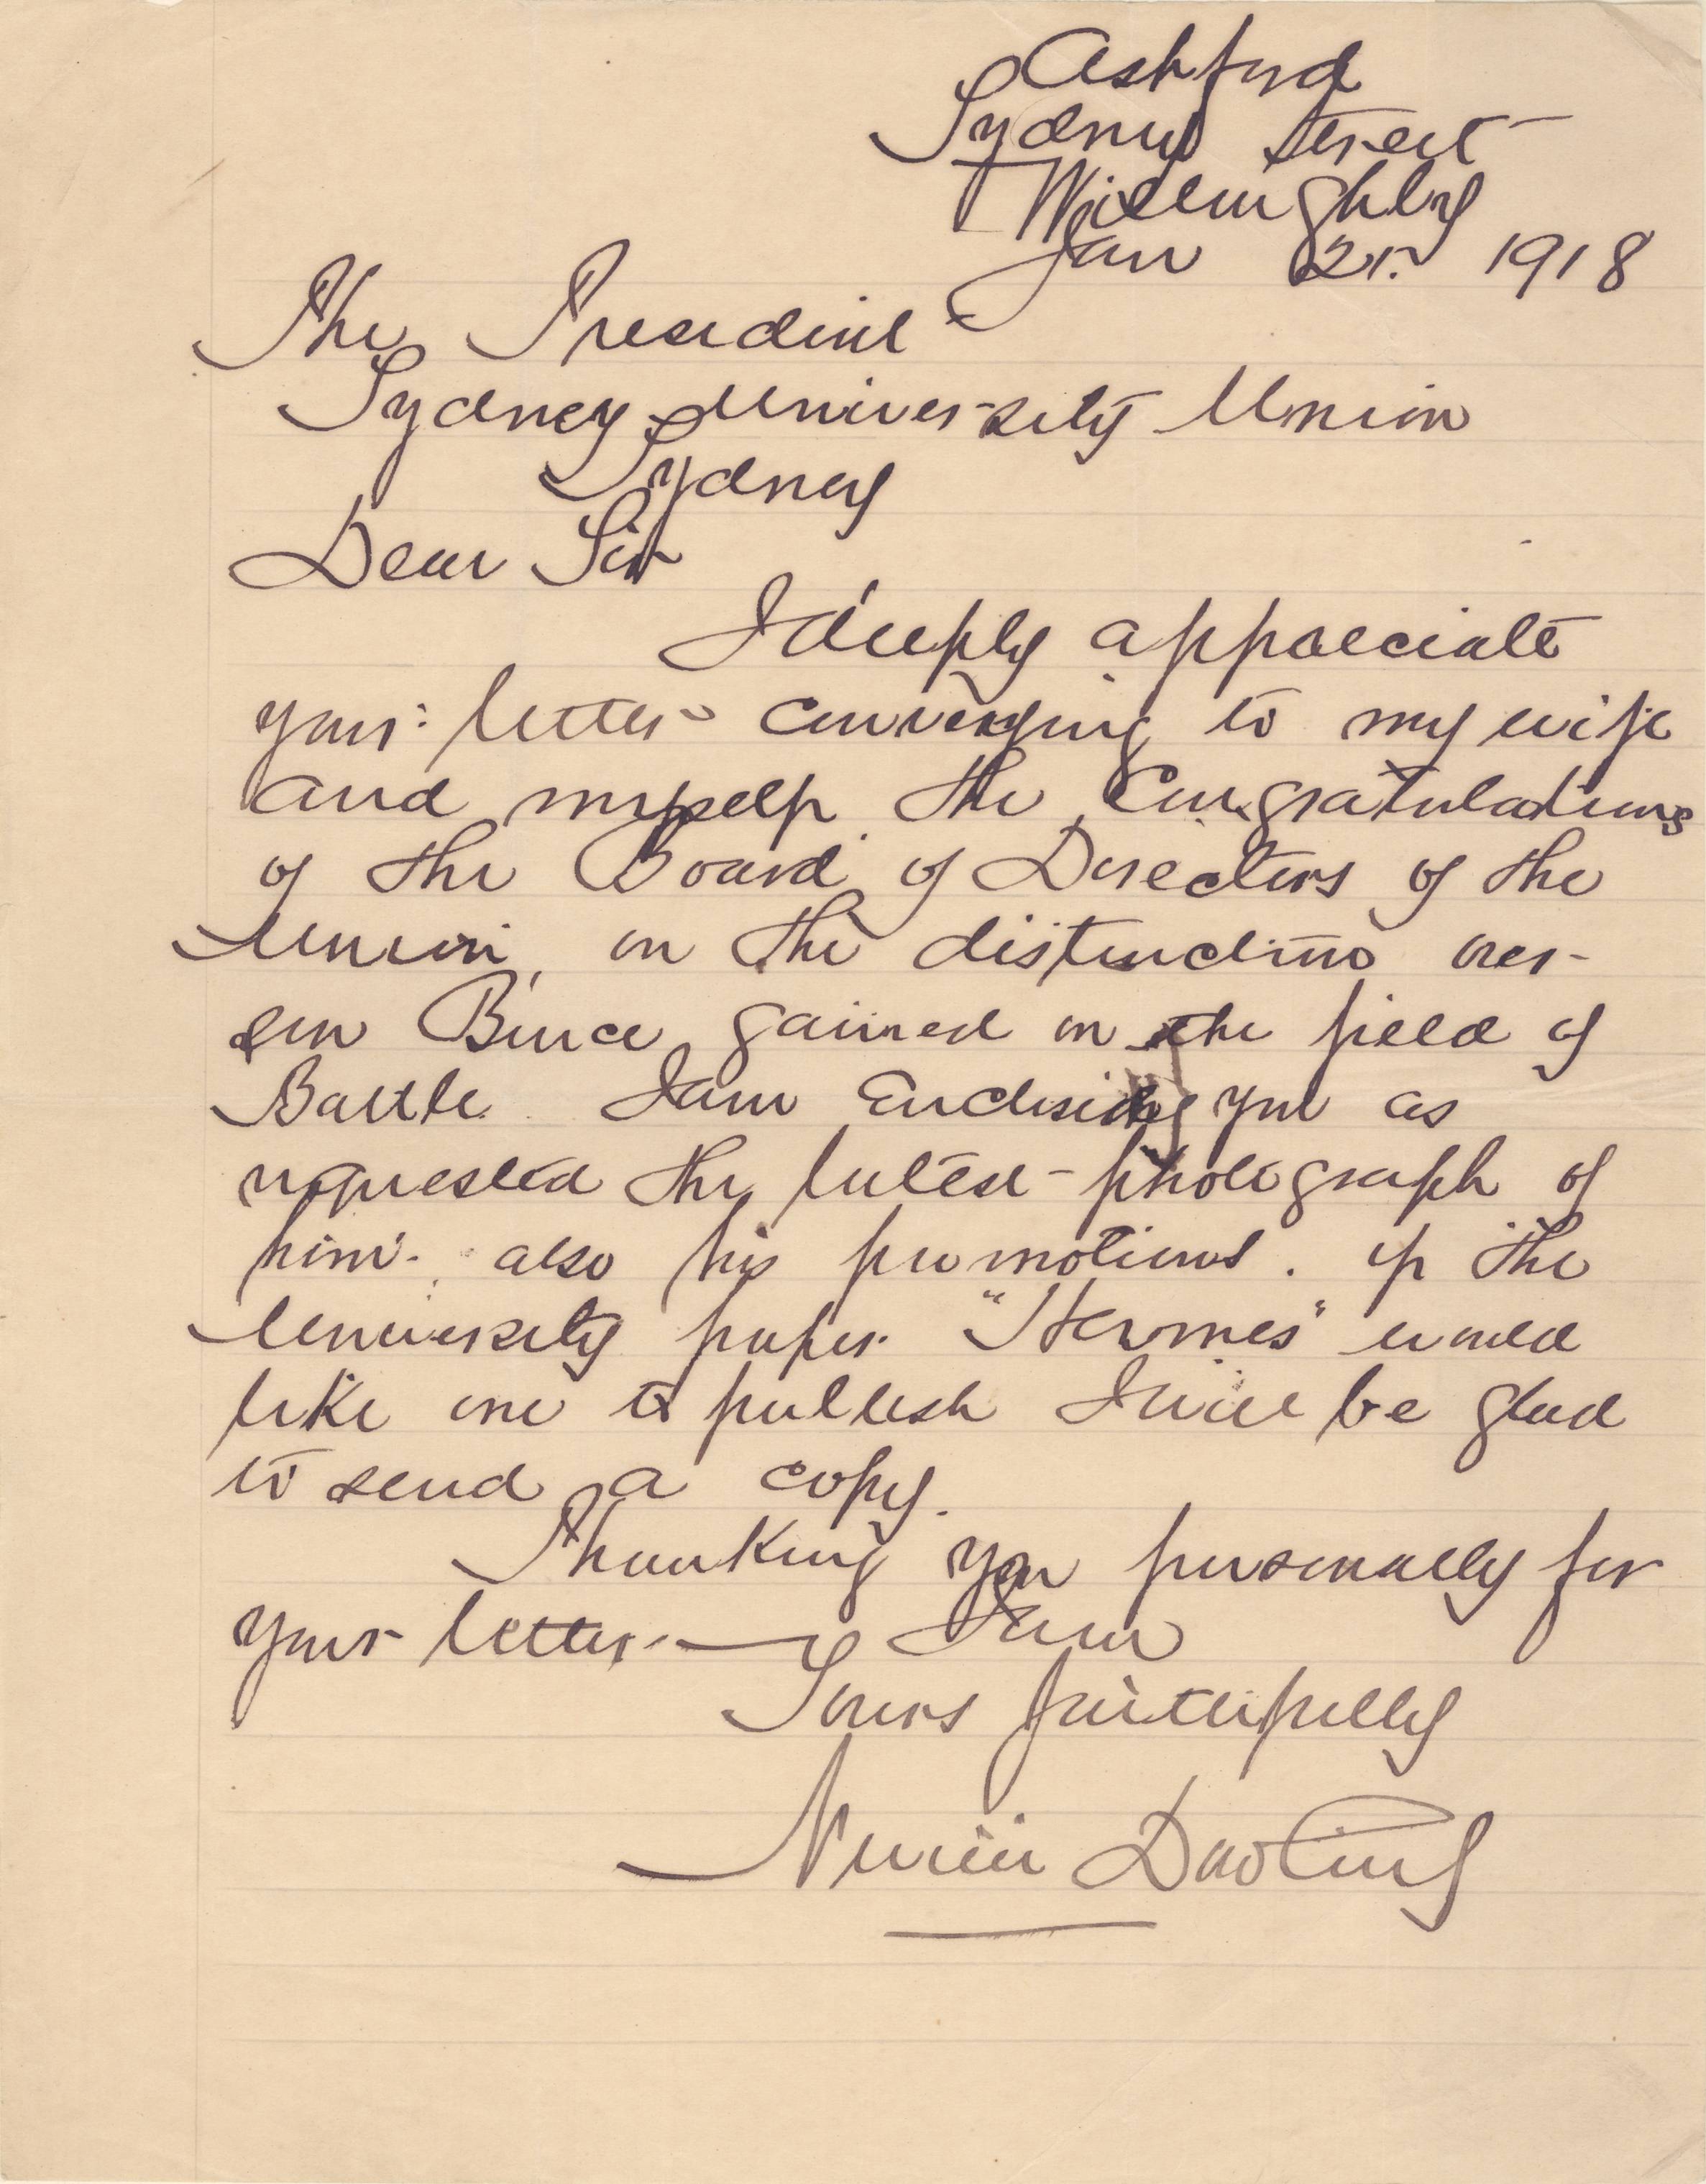 Ashford
Sydney Street
Willoughby
Jan 21. 1918
The President
Sydney University Union
Sydney
Dear Sir
I deeply appreciate
your letter conveying to my wife
and myself the Congratulations
of the Board of Directors of the
Union, on the distinctions our
son Bruce gained on the field of
Battle. I am Enclosing you as
requested the latest photograph of
him. also his promotions. if the
University paper "Hermes" would
like one to publish I will be glad
to send a copy.
Thanking you personally for
your letter — I am
Yours faithfully
Darling